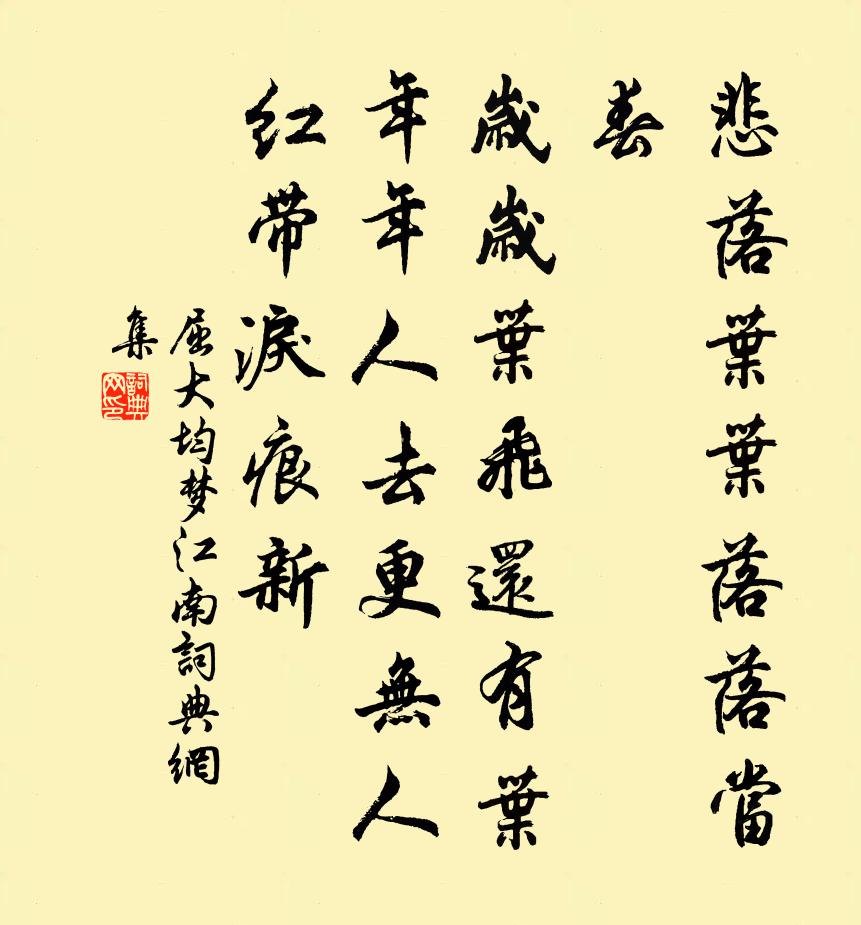 悲落葉葉落落當
春
歲歲葉飛還有葉
年年人去更無人
红帶淚痕新
屈大均梦江南詞典網
集
詞典网印